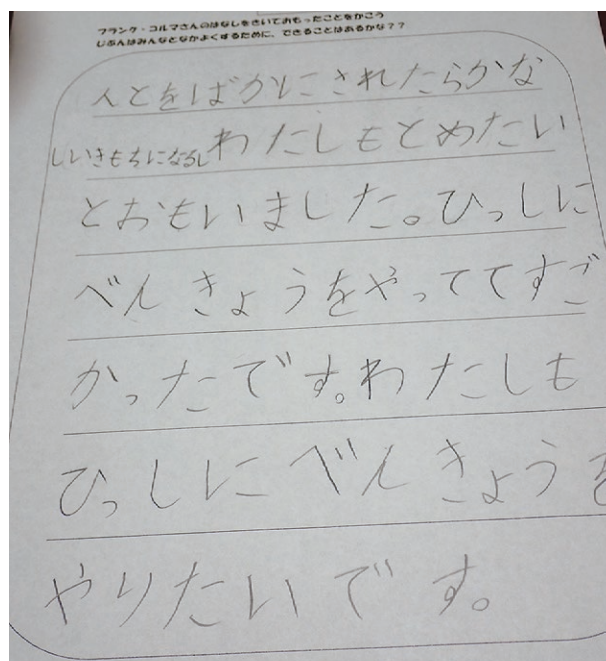 フランク・コルマさんのはなしをきいておもったことをかこう
じぶんはみんなとなかよくするために、できることはあるかな??
人とをばかにされたらかな
しいきもちになるしわたしもとめたい
とおもいました。ひっしに
べんきょうをやっててすご
かったです。わたしも
ひっしにべんきょうを
やりたいです。